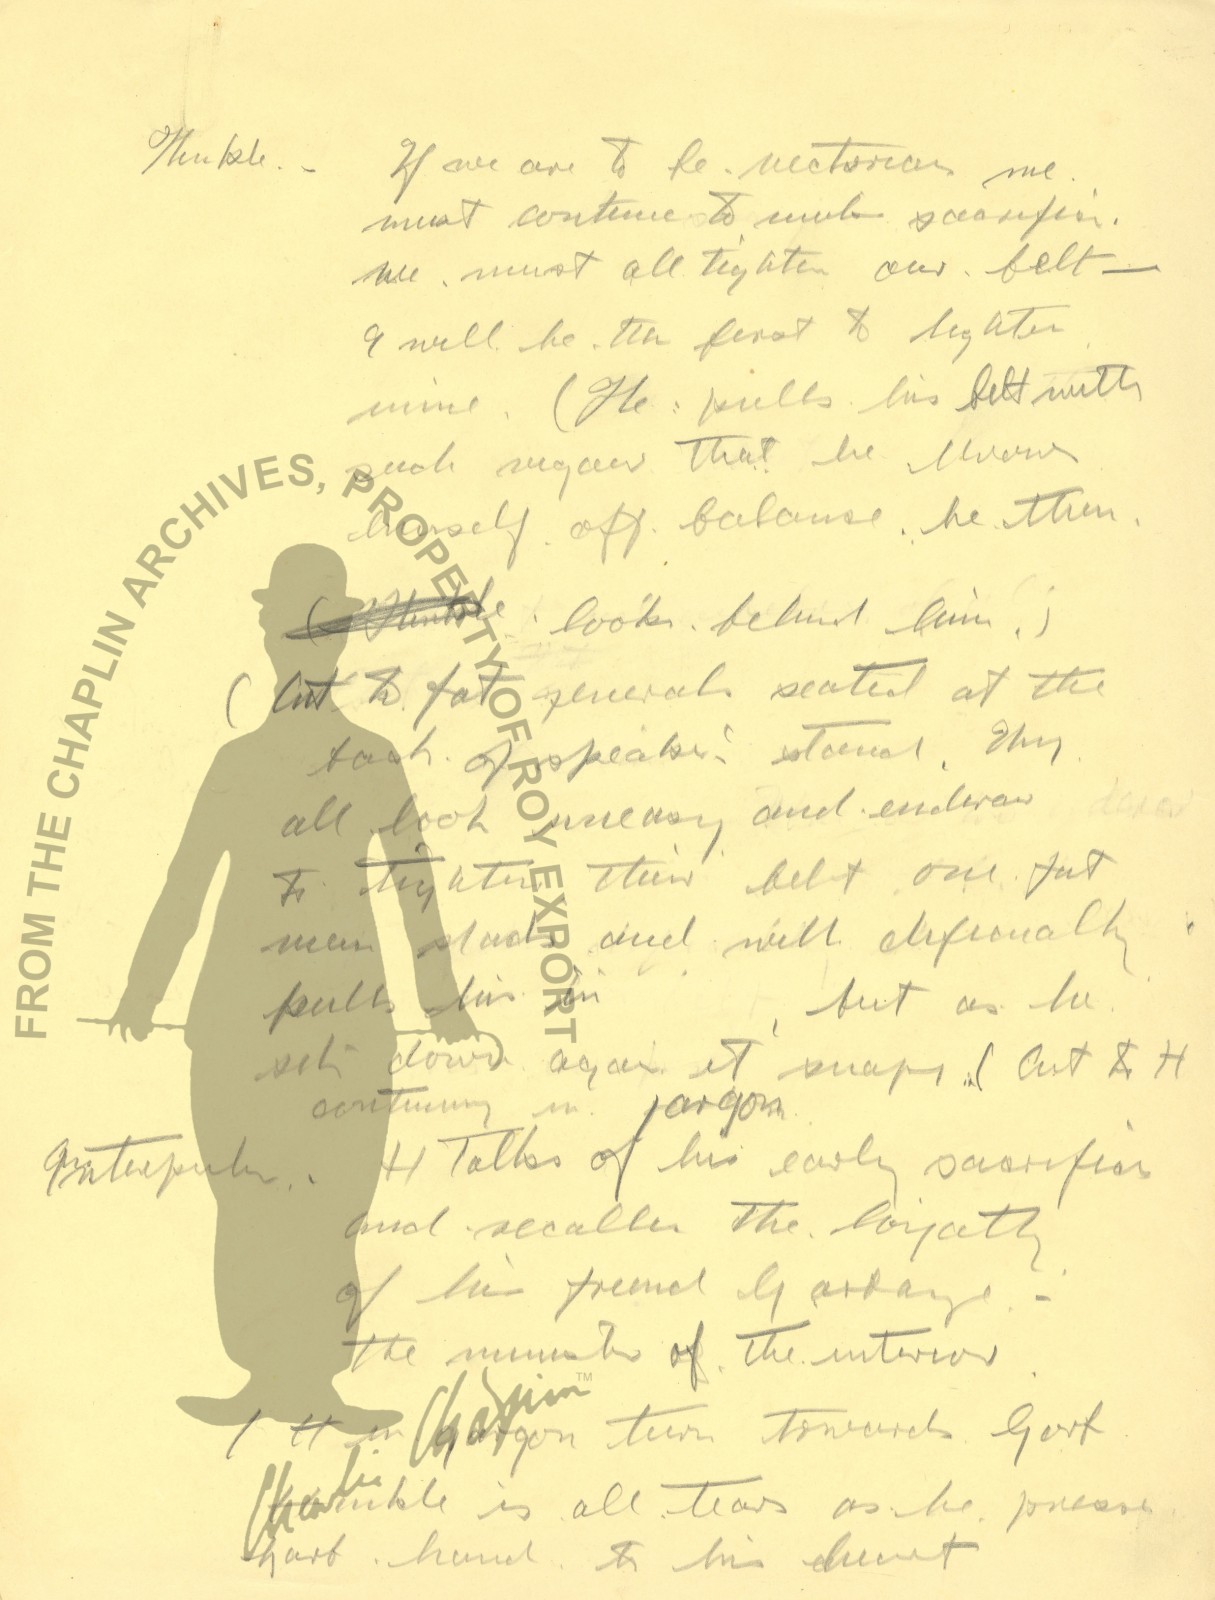 Hinkle. - If we are to be victorious we
must continue to make sacrifices.
we must all tighten our belt —
I will be the first to tighten
mine. (He pulls his belt with
such vigour that he throws
himself off balance. he then.
( Hinkle looks behind him.)
( Cut to fat generals seated at the
back of speaker's stand. They
all look uneasy and endevor
to tighten their belt one fat
man stads and with
pulls his in , but as he
sets down again it snaps. ( Cut to H
continuing in jargon.
Interpreter. . H Talks of his early sacrifices
and recalles the loyalty
of his friend -
the minister of the interior
( H in jargon turn towards Garb
hinkle is all tears as he presses
garb hand to his cheart
FROM THE CHAPLIN ARCHIVES, PROPERTY OF ROY EXPORT
Charlie Chaplin™